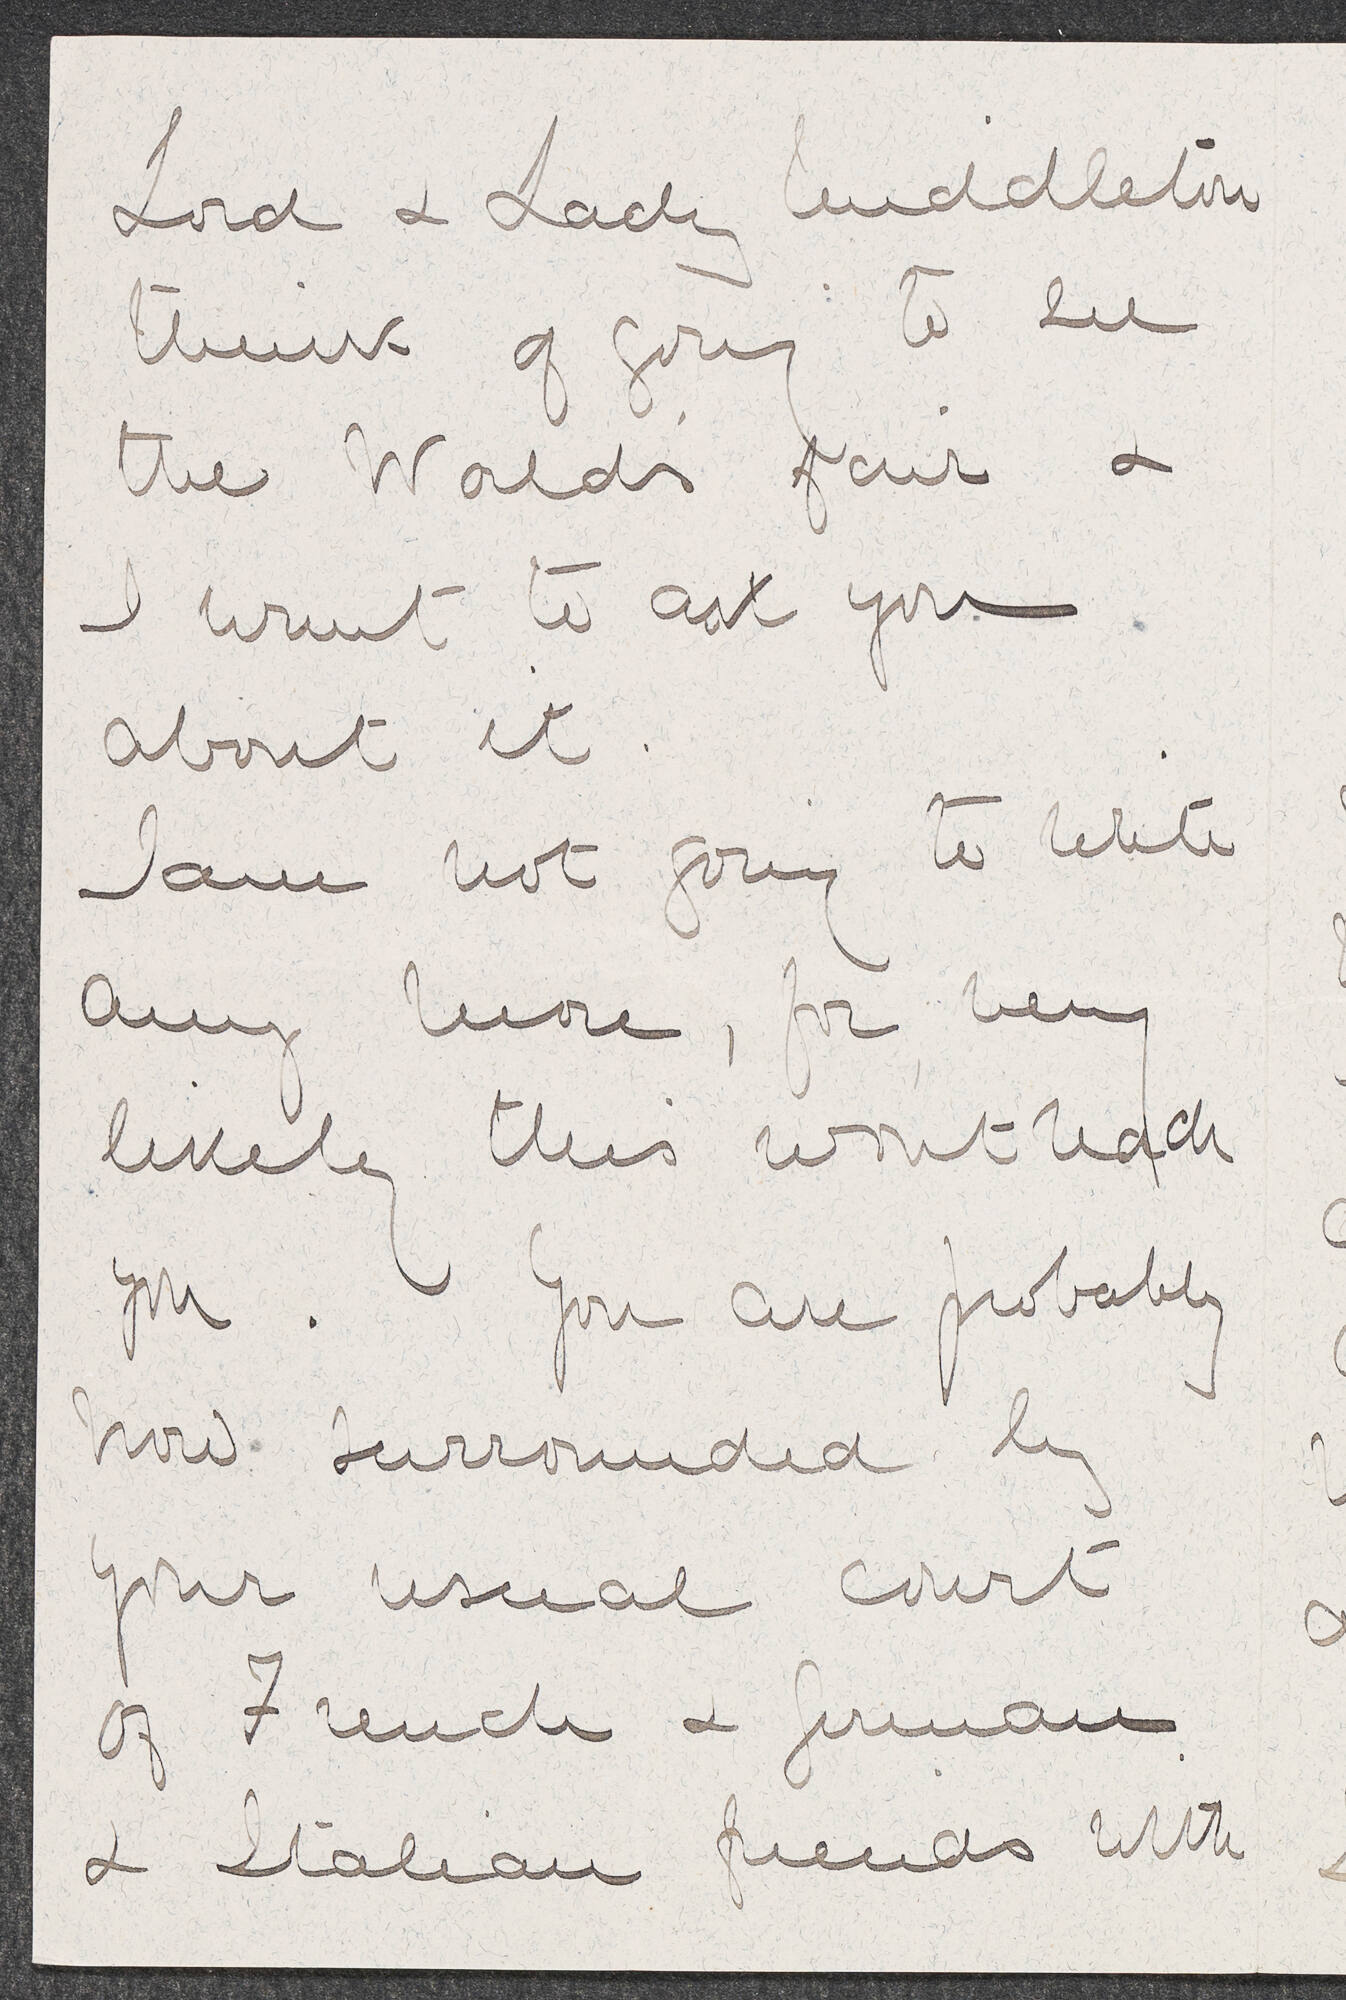 Lord & Lady Middleton
think of going to see
the World's fair &
I want to ask you
about it.
I am not going to write
any more, for very
likely this wont reach
you. You are probably
now surrounded by
your usual court
of French & German
& Italian friends with